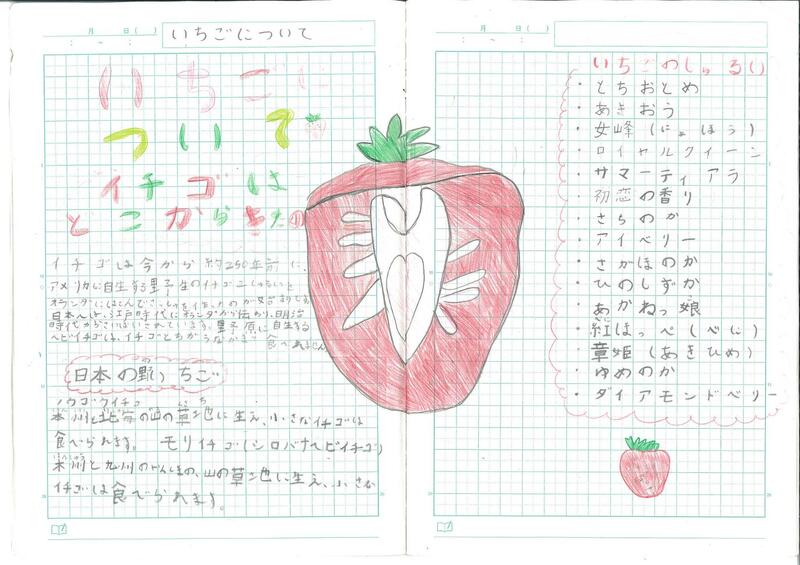 月 日( )
: ~ :
いちごについて
いちごに
ついて
イチゴは
とこからきた
イチゴは今から約250年前に、
アメリカに自生する野生のイチゴ二しゅるいと
日本へは、江戸時代にオランダから伝わり、明治
時代からさいばいされています。野原に自生する
ヘビイチゴは、イチゴとちがうなかまで食べれません。
日本の野いちご
ノウゴウイチゴ
本州と北海道の山の草地に生え、小さなイチゴは
食べられます。 モリイチゴ(シロバナヘビイチゴ)
本州と九州の 山の草地に生え、小さな
イチゴは食べられます。
月 日( )
: ~ :
いちごのしゅるい
・とちおとめ
・あきおう
・女峰(にょほう)
・ロイヤルクイーン
・サマーティアラ
・初恋の香り
・さちのか
・アイベリー
・さがほのか
・ひのしずか
・あかねっ娘
・紅ほっぺ(べに)
・章姫(あきひめ)
・ゆめのか
・ダイアモンドベリー